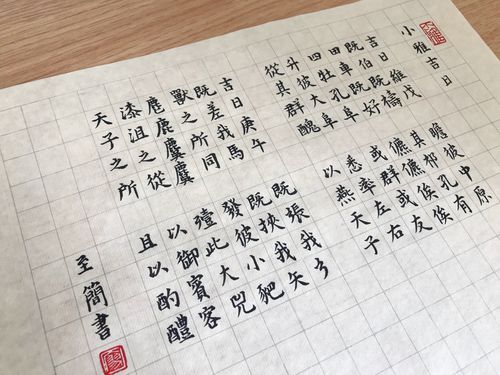 小雅吉日
吉日維戊
既伯既禱
田車既好
四牡孔阜
升彼大阜
從其群醜
吉日庚午
既差我馬
獸之所同
麀鹿麌麌
漆沮之從
天子之所
瞻彼中原
其祁孔有
儦儦俟俟
或群或友
悉率左右
以燕天子
既張我弓
既挾我矢
發彼小豝
殪此大兕
以御賓客
且以酌醴
至簡書